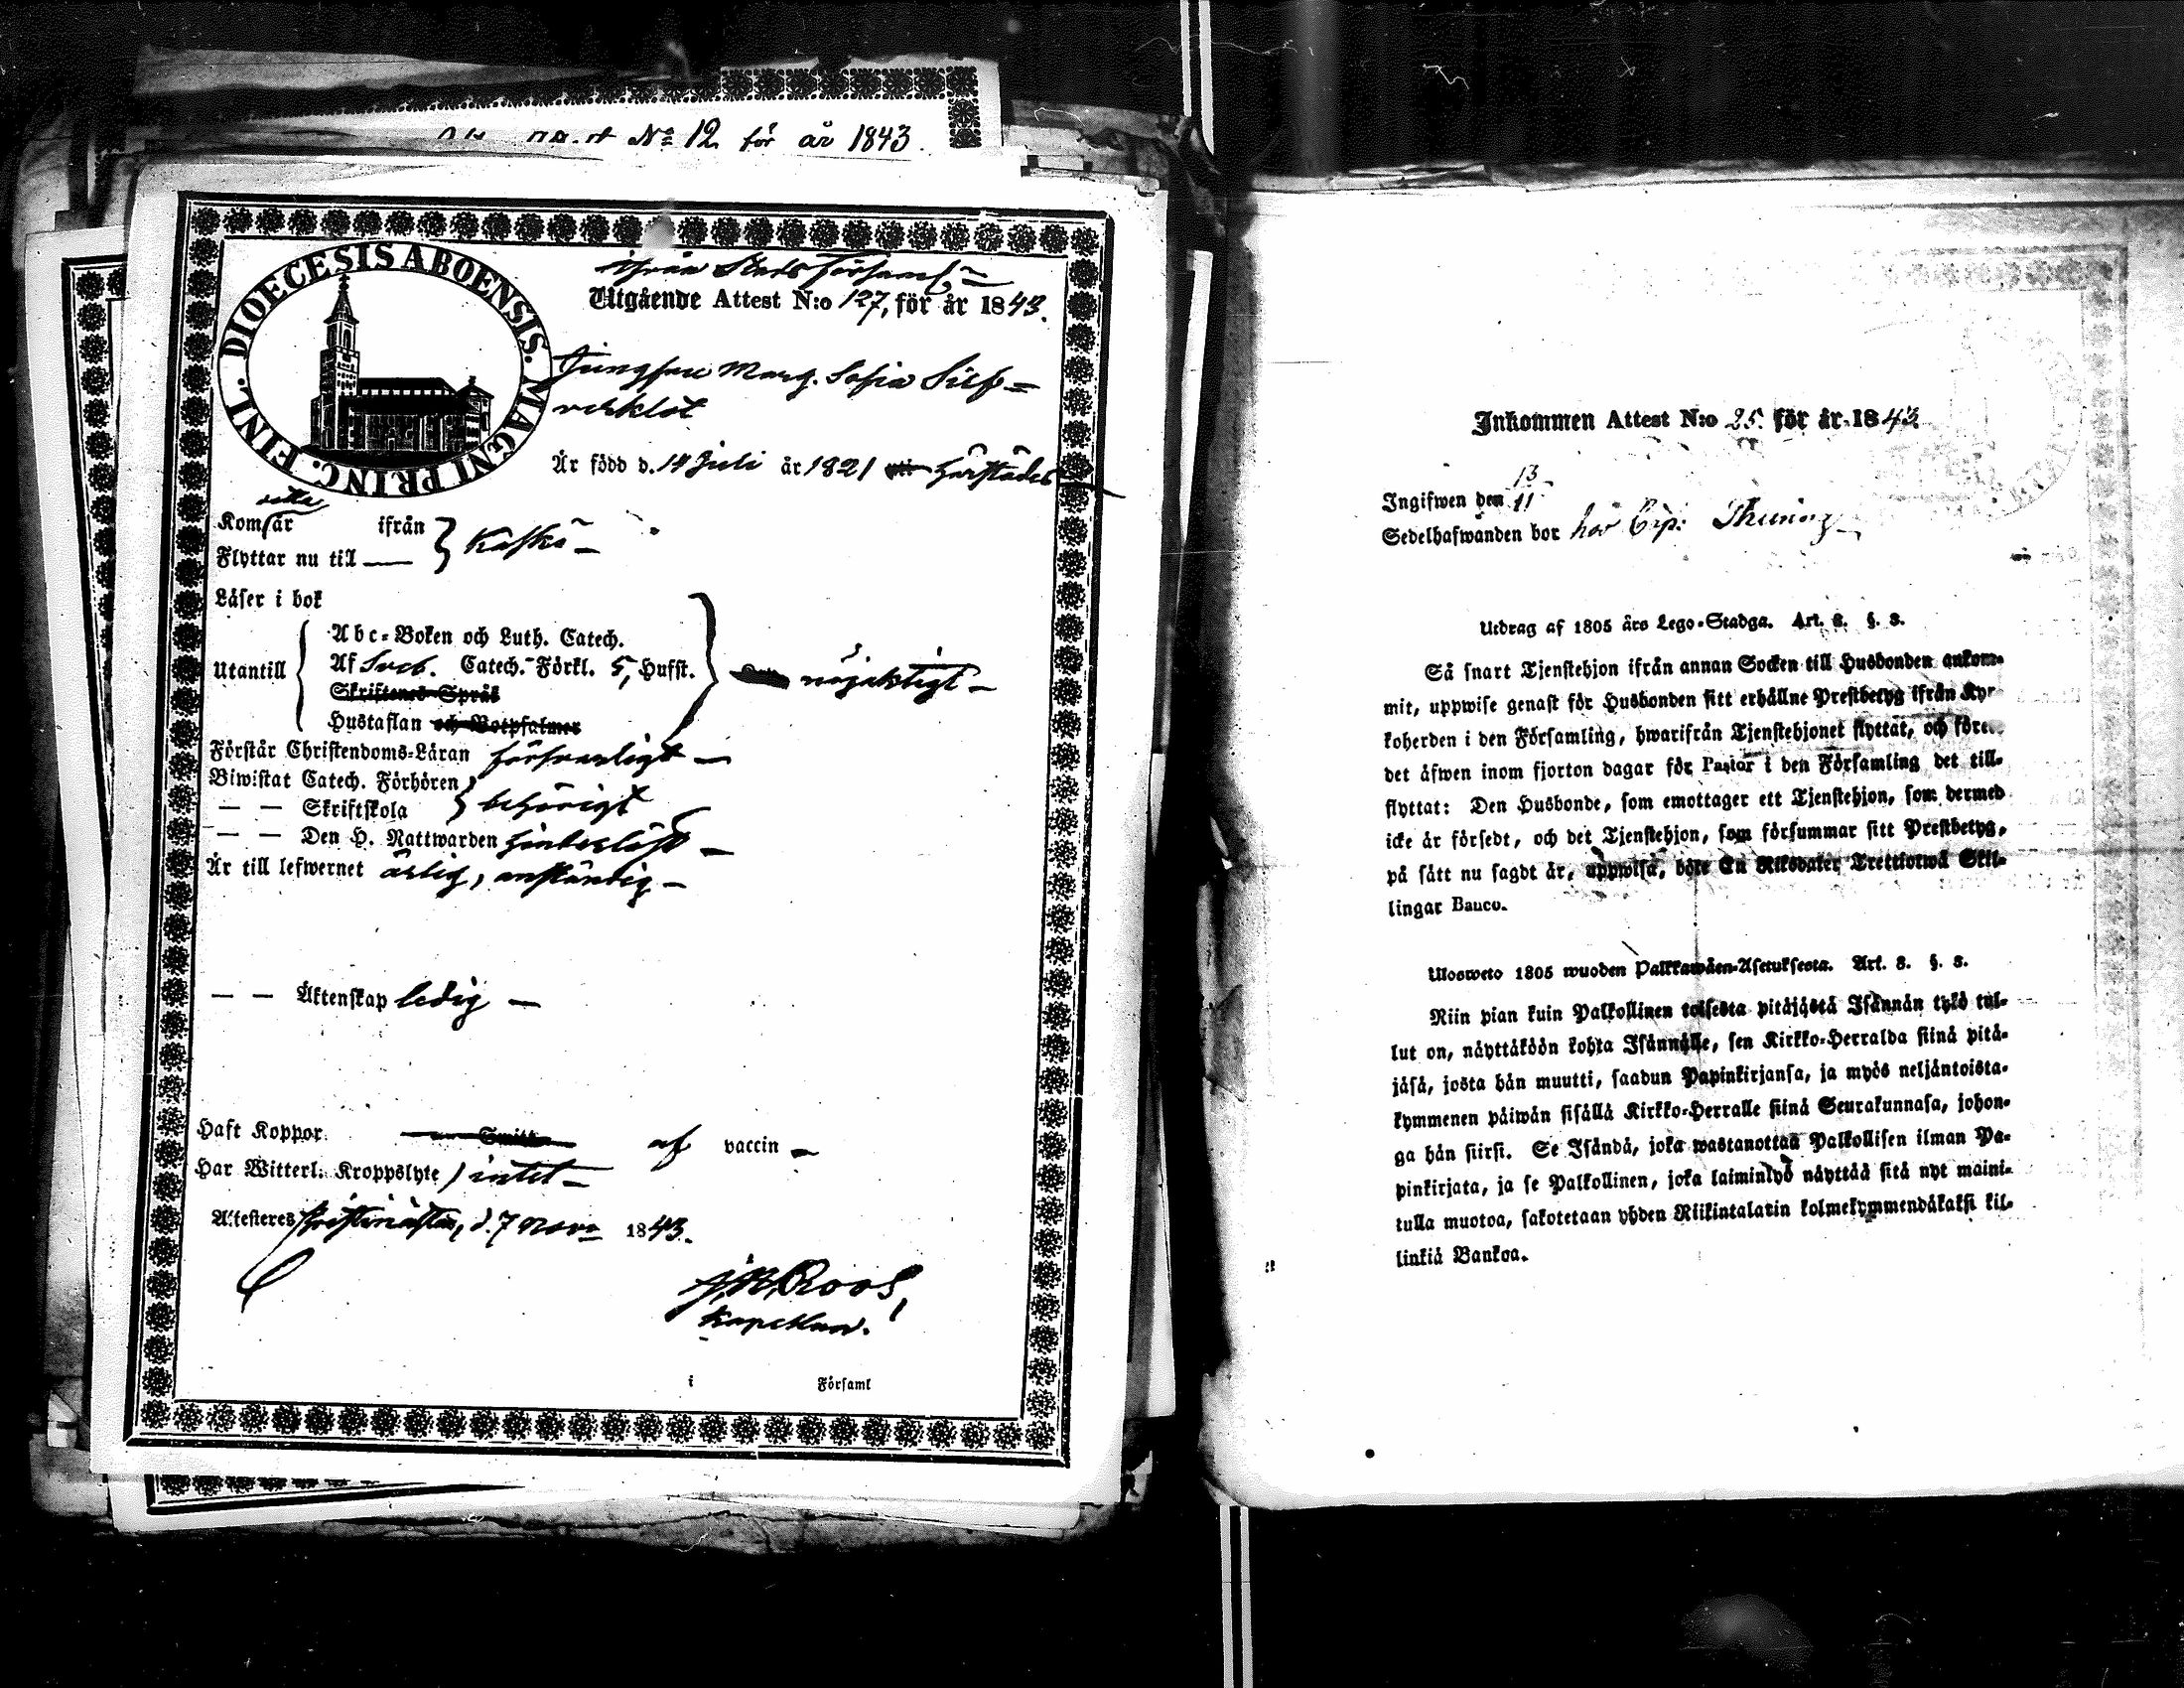 Attest No 12 för år 1843.
DIOECESIS ABOENSIS. MAGNI PRINC. FINL.
ifrån Stads Församl.
Utgående Attest N:o 127, för år 1843.
Jungfru Marg. Sofia Silf=
verklot
Är född d. 14 Juli år 1821 härstädes
Kom år ifrån
Flyttar nu till — } Kaskö —
Läser i bok
Abc-Boken och Luth. Catech.
Utantill { Af Sveb. Catech. Förkl. 5, Hufst. } nöjaktigt —
Skriftenes Språk
Hustaflan och Botpsalmer
Förstår Christendoms-Läran försvarligt —
Biwistat Catech. Förhören }
— — Skriftskola } behörigt
— — Den H. Nattwarden hinderlöst —
Är till lefwernet ärlig, anständig —
— — Äktenskap ledig —
Haft Koppor af vaccin —
Har Witterl. Kroppslyte / intet —
Attesteres Christinestad, d. 7 Nov. 1843.
Roos,
Kapellan.
i Församl
Inkommen Attest N:o 25. för år 1843
13
Ingifwen den 11
Sedelhafwanden bor hos Cap: Thuring
Utdrag af 1805 års Lego-Stadga. Art. 8. §. 8.
Så snart Tjenstehjon ifrån annan Socken till Husbonden ankom-
mit, uppwise genast för Husbonden sitt erhållne Prestbetyg ifrån Kyr-
koherden i den Församling, hwarifrån Tjenstehjonet flyttat, och före..
det äfwen inom fjorton dagar för Pastor i den Församling det till-
flyttat: Den Husbonde, som emottager ett Tjenstehjon, som dermed
icke är försedt, och det Tjenstehjon, som försummar sitt Prestbetyg,
på sätt nu sagdt är, uppwisa, böte En Riksdaler Trettiotwå Skil-
lingar Banco.
Ulosweto 1805 wuoden Palkkawäen-Asetuksesta. Art. 8. §. 8.
Niin pian kuin Palkollinen toisesta pitäjästä Isännän tykö tul-
lut on, näyttäköön kohta Isännälle, sen Kirkko-Herralda siinä pitä-
jäsä, josta hän muutti, saadun Papinkirjansa, ja myös neljäntoista-
kymmenen päiwän sisällä Kirkko-Herralle siinä Seurakunnasa, johon-
ga hän siirsi. Se Isändä, joka wastanottaa Palkollisen ilman Pa-
pinkirjata, ja se Palkollinen, joka laiminlyö näyttää sitä nyt maini-
tulla muotoa, sakotetaan yhden Riikintalarin kolmekymmendäkaksi kil-
linkiä Bankoa.